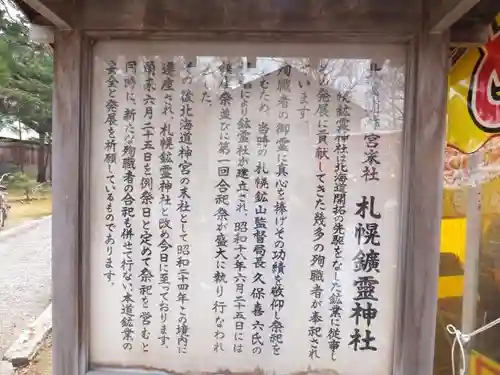 北海道神宮末社 札幌鑛霊神社
札幌鑛霊神社は北海道開拓の先駆をなした鉱業に従事し
発展に貢献してきた幾多の殉職者が奉祀され
います。
殉職者の御霊に真心を捧げその功績を敬仰し祭祀を
むため、当時の札幌鉱山監督局長久保喜六氏の
により鉱霊社が建立され、昭和十八年六月二十五日には
座祭並びに第一回合祀祭が盛大に執り行なわれ
した。
の後北海道神宮の末社として昭和二十四年この境内に
遷座され、札幌鉱霊神社と改め今日に至っております。
爾来六月二十五日を例祭日と定めて祭祀を営むと
同時に、新たな殉職者の合祀も併せて行ない、本道鉱業の
安全と発展を祈願しているものであります。